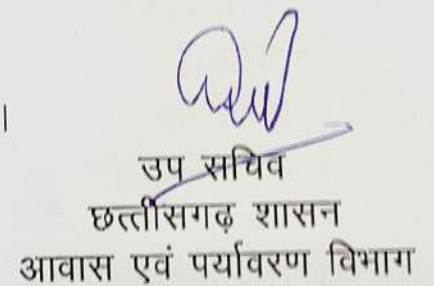 ।
उप सचिव
छत्तीसगढ़ शासन
आवास एवं पर्यावरण विभाग